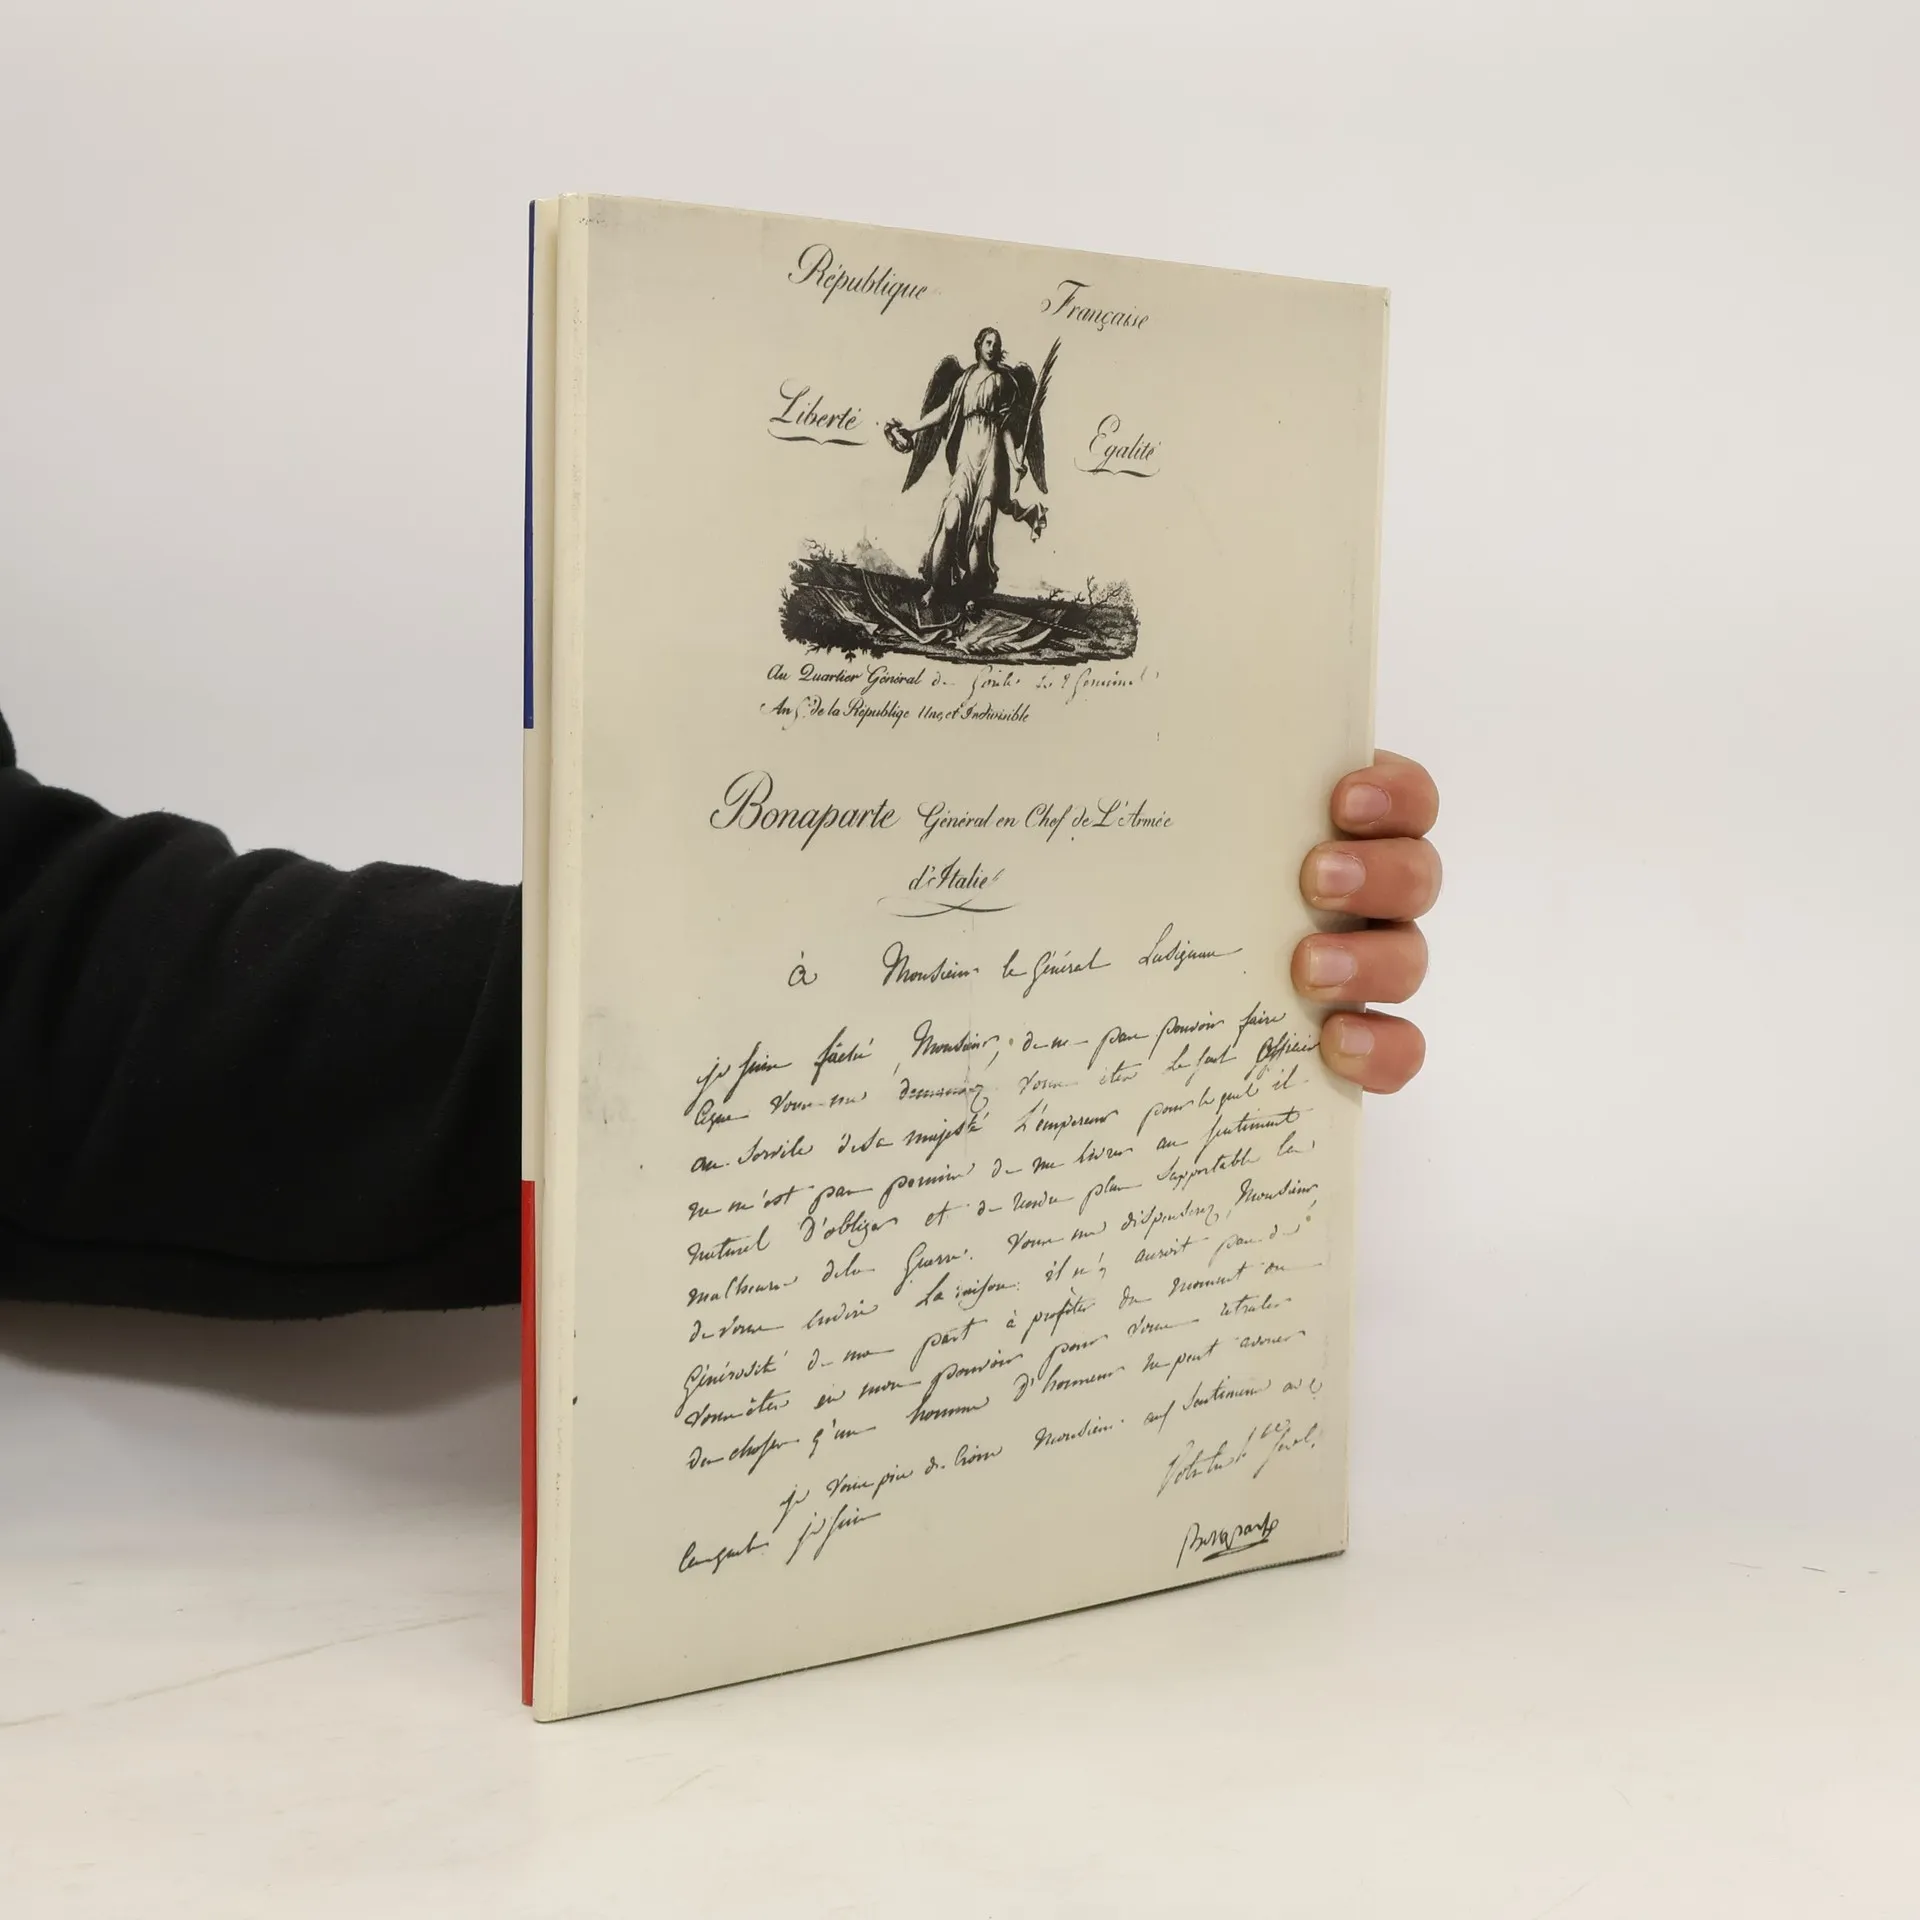 République Française
Liberté Egalité
Au Quartier Général de le 9 Germinal
An 5e de la Républiqe Une, et Indivisible
Bonaparte Général en Chef de L'Armée
d'Italie
à Monsieur le Général Lusignan
je suis fâché, Monsieur, de ne pas pouvoir faire
ceque vous me demandez vous êtes le seul officier
au service de Sa majesté L'empereur pour lequel il
ne m'est pas permis de me livrer au sentiment
naturel d'obliger et de rendre plus supportable les
malheurs dela Guerre. vous me dispenserez, Monsieur,
de vous endire La raison: il n'y auroit pas de
Générosité de ma part à profiter du moment ou
vous êtes en mon pouvoir pour vous
des choses q'un homme d'honneur ne peut avouer
je vous prie de croire Monsieur aux Sentimens avec
lesquels je suis
Bonaparte